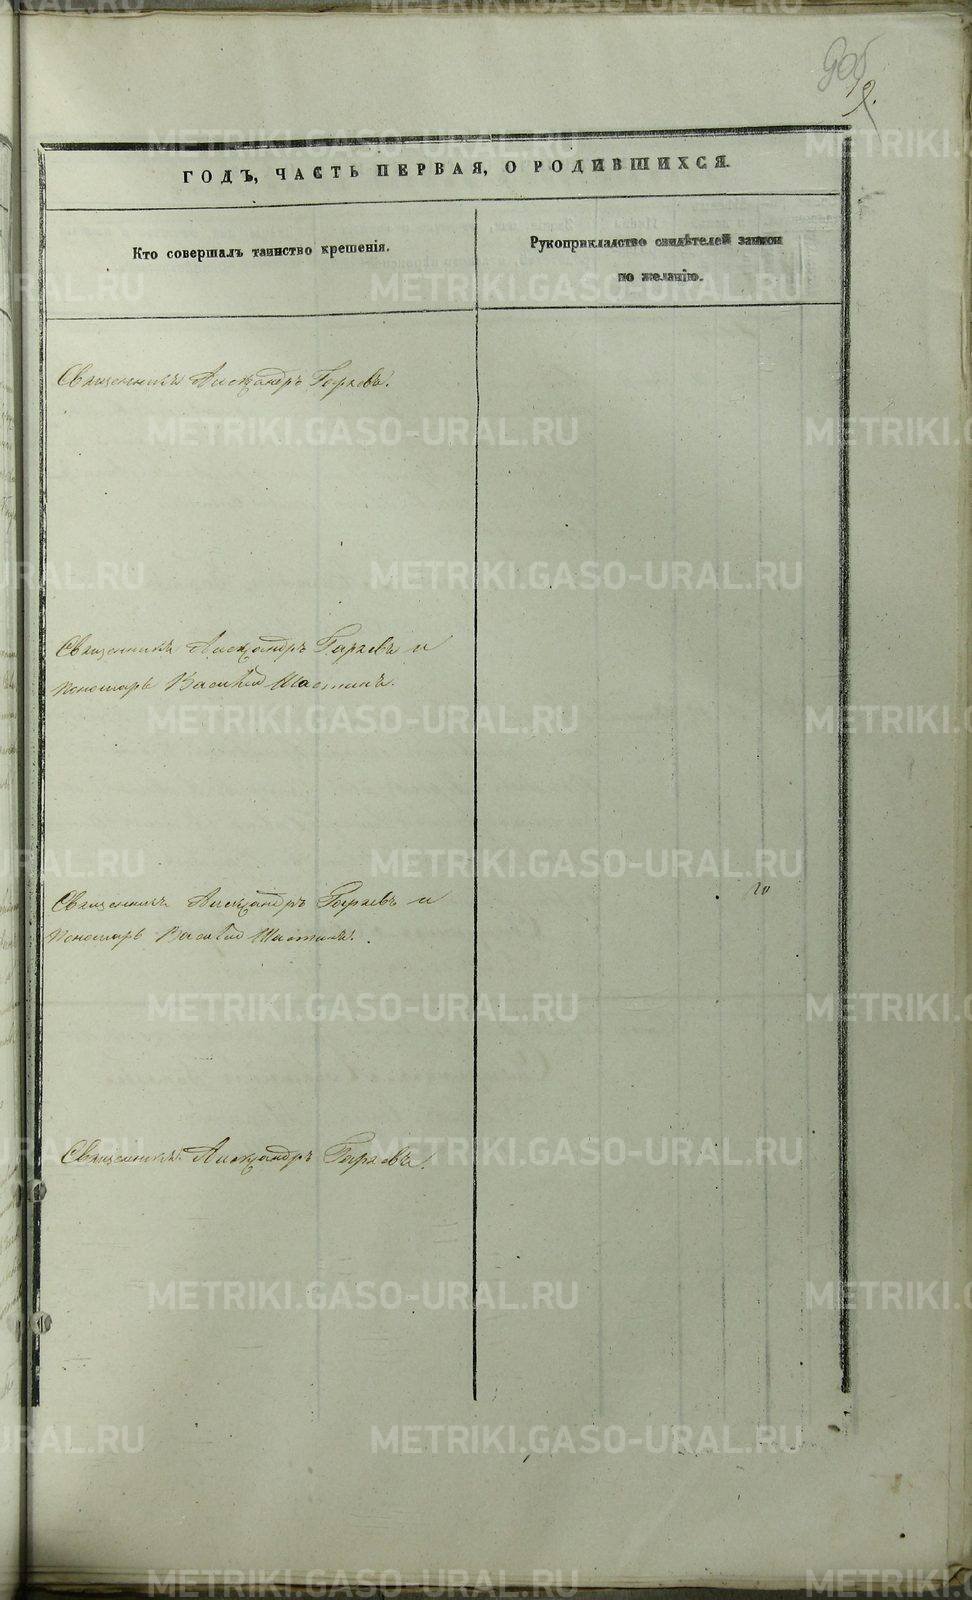 905
ГОДЪ, ЧАСТЬ ПЕРВАЯ, О РОДИВШИХСЯ.
Кто совершалъ таинство крещенія.
Рукоприкладство свидѣтелей записи
по желанію.
Священникъ Александръ
Священникъ Александръ и
Пономарь Василій Шастинъ.
Священникъ Александръ и
Пономарь Василій Шастинъ.
Священникъ Александръ
METRIKI.GASO-URAL.RU